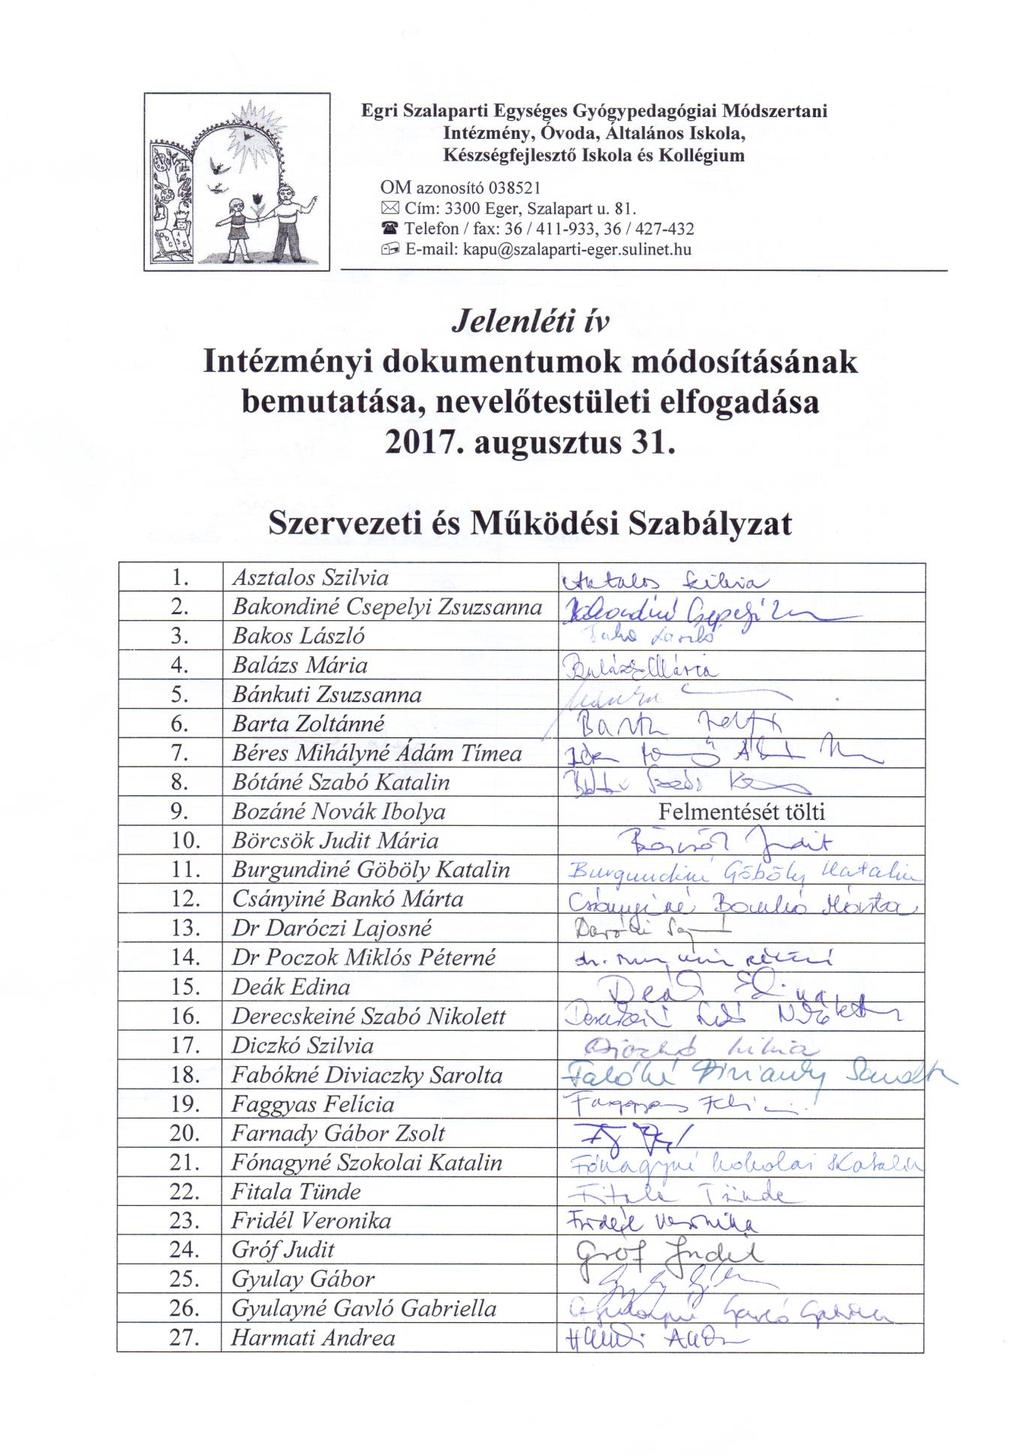 Egri Szalaparti Egységes Gyógypedagógiai Módszertani
Intézmény, Óvoda, Általános Iskola,
Készségfejlesztő Iskola és Kollégium
OM azonosító 038521
Cím: 3300 Eger, Szalapart u. 81.
Telefon / fax: 36 / 411-933, 36 / 427-432
E-mail: kapu@szalaparti-eger.sulinet.hu
Jelenléti ív
Intézményi dokumentumok módosításának
bemutatása, nevelőtestületi elfogadása
2017. augusztus 31.
Szervezeti és Működési Szabályzat
1. Asztalos Szilvia Asztalos Szilvia
2. Bakondiné Csepelyi Zsuzsanna Bakondiné Csepelyi
3. Bakos László
4. Balázs Mária Balázs Mária
5. Bánkuti Zsuzsanna
6. Barta Zoltánné Barta
7. Béres Mihályné Ádám Tímea
8. Bótáné Szabó Katalin Szabó
9. Bozáné Novák Ibolya Felmentését tölti
10. Börcsök Judit Mária Börcsök Judit
11. Burgundiné Göböly Katalin Burgundiné Göböly Katalin
12. Csányiné Bankó Márta Csányiné Bankó Márta
13. Dr Daróczi Lajosné Daróczi
14. Dr Poczok Miklós Péterné dr.
15. Deák Edina Deák Edina
16. Derecskeiné Szabó Nikolett Derecskeiné Szabó Nikolett
17. Diczkó Szilvia Diczkó Szilvia
18. Fabókné Diviaczky Sarolta Fabókné Diviaczky Sarolta
19. Faggyas Felícia Faggyas Felícia
20. Farnady Gábor Zsolt
21. Fónagyné Szokolai Katalin Fónagyné Szokolai Katalin
22. Fitala Tünde Fitala Tünde
23. Fridél Veronika Fridél Veronika
24. Gróf Judit Gróf Judit
25. Gyulay Gábor
26. Gyulayné Gavló Gabriella Gyulayné Gavló Gabriella
27. Harmati Andrea Harmati Andrea